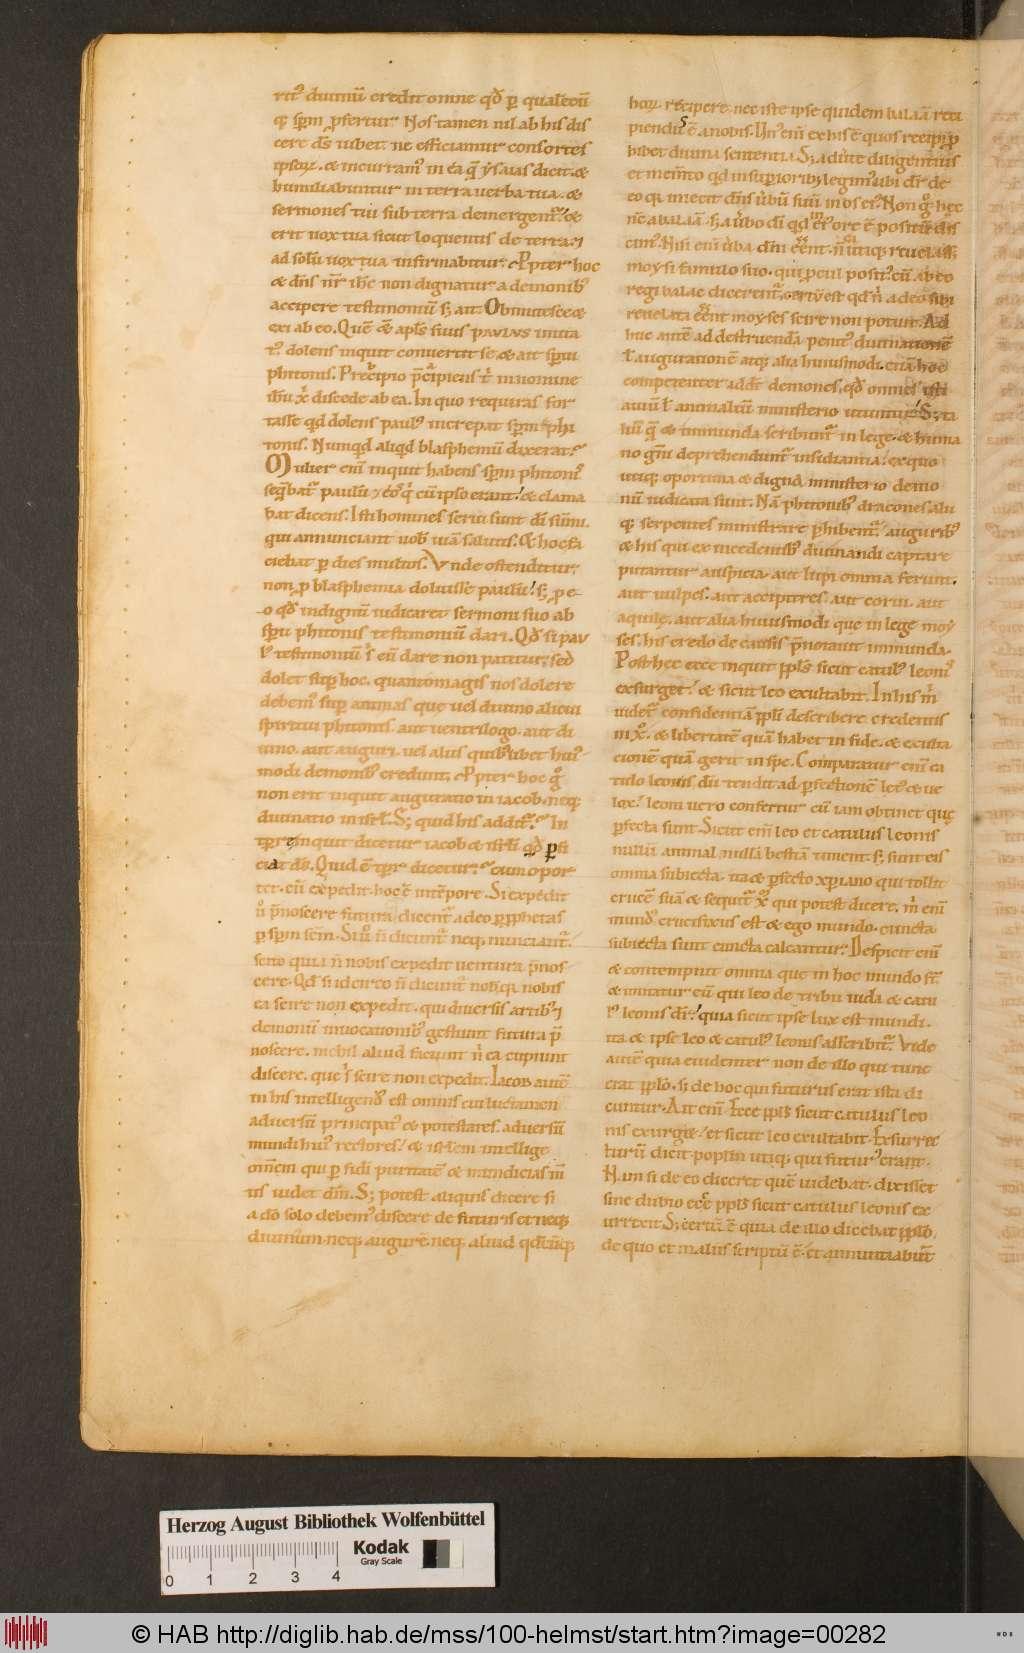 ritꝰ diuinũ credit omne qđ ꝑ qualecũ
qꝫ spm̃ ꝓfertur. Nos tamen nil ab his dis
cere dñs iubet. ne efficiamur consortes
ipsoꝝ. & incurramꝰ in ea q̃ ysaias dicit. &
humiliabuntur in terra uerba tua. &
sermones tui sub terra demergent᷑. &
erit uox tua sicut loquentis de terra. ⁊
ad solũ uox tua infirmabitur. Ꝓpter hoc
& dñs nr̃ ihc̃ non dignatur a demonibꝰ
accipere testimoniũ sꝫ ait. Obmutesce &
exi ab eo. Quẽ & apls̃ siuis paulus imita
tꝰ. dolens inquit conuertit se. & ait spũi
phitonis. Precipio p̃cipiens t̉ in nomine
ihũ xp̃i discede ab ea. In quo requiras for
tasse qđ dolens paulꝰ increpat spm̃ phi
tonis. Nunqđ aliqđ blasphemũ dixerat.
Mulier eni᷑ inquit habens spm̃ phitonis
seq̃bat᷑ paulũ ⁊ eos q̉ cũ ipso erant. & clama
bat dicens. Isti homines serui sunt dĩ sũmi.
qui annunciant uob̃ uiã salutis. & hoc fa
ciebat ꝑ dies multos. Vnde ostenditur.
non ꝓ blasphemia doluisse paulũ. sꝫ ꝓ e-
o qđ indignũ iudicaret sermoni suo ab
spũ phitonis testimoniũ dari. Qđ si pau
lꝰ testimoniũ s̉ eũ dare non patitur. sed
dolet sup̃ hoc. quantomagis nos dolere
debemꝰ sup̃ animas que uel diuino alicui
spiritui phitonis. aut uentrilogo. aut di
uino. aut auguri. uel aliis quibꝰlibet huiꝰ
modi demonibꝰ credunt. Ꝓpter hoc g̊
non erit inquit auguratio in iacob. neqꝫ
diuinatio in isrl̃. Sꝫ quid his addit᷑. In
tp̃re inquit dicetur iacob & isrl̃i qđ ꝑfi
ciat ds̃. Quid ẽ tp̃r dicetur. cum opor
tet. cũ expedit. hoc ẽ in tẽpore. Si expedit
ũ p̃noscere futura. dicent᷑ a deo ꝑ ꝓphetas
ꝑ spm̃ scm̃. Si ũ ñ dicunt᷑ neqꝫ nunciant᷑.
scito quia ñ nobis expedit uentura p̃nos
cere. Qđ si idcirco ñ dicunt᷑ nobis qꝫ nobis
ea scire non expedit. qui diuersis artibꝰ ⁊
demonũ inuocationibꝰ gestiunt futura p̃
noscere. nichil aliud faciunt ñ ea cupiunt
discere. que s̉ scire non expedit. Iacob autẽ
in his intelligendꝰ est omnis cui luctamen
aduersũ principatꝰ & potestates. aduersũ
mundi huiꝰ rectores. & isrl̃em intellige
omnem qui ꝑ fidei puritatẽ & mundicias m̃
tis uidet dm̃. Sꝫ potest aliquis dicere si
a dõ solo debemꝰ discere de futuris et neqꝫ
diuinum. neqꝫ augurẽ neqꝫ aliud qđcũqꝫ
hoꝝ recipere. nec iste ipse quidem balaã reci
piendus ẽ a nobis. Vnꝰ eni᷑ ex his ẽ quos recipi ꝓ
hibet diuina sententia. Sꝫ aduerte diligentius
et memẽto qđ in superioribꝫ legimꝰ ubi dr̃ de
eo qꝫ iniecit dñs ũbũ suũ in os eiꝰ. Non g̊ hec
nc̃ a balaã. sꝫ a ũbo dĩ qđ in eiꝰ ore ẽ positũ dis
cimꝰ. Nisi eni᷑ ũba dñi eẽnt. ñ utiqꝫ reuelasset
moysi famulo suo. qui ꝓcul positꝰ cũ ab eo
regi balac dicerent᷑. certũ est qđ ñ a deo sibi
reuelata eẽnt moyses scire non potuit. Ad
huc autẽ ad destruendã penitꝰ diuinationẽ
ł auguratione᷑ atqꝫ alia huiusmodi. etiã hoc
competenter addit᷑ demones. qđ omnes isti
auiũ ł animaliũ ministerio utuntur. Sꝫ ta
liũ q̃ & immunda scribunt᷑ in lege. & huma
no gñi deprehendunt᷑ insidiantia. ex quo
utiqꝫ oportuna & digna ministerio demo
nũ iudicata sunt. Nã phitonibꝰ dracones. alii
qꝫ serpentes ministrare ꝑhibent᷑. auguribꝰ
& his qui ex incedentibꝰ diuinandi captare
putantur auspicia. aut lupi omnia ferunt.
aut uulpes. aut accipitres. aut corui. aut
aquile. aut alia huiusmodi que in lege moy
ses. his credo de causis p̃notauit immunda.
Post hec ecce inquit ppls̃ sicut catulꝰ leonis
exsurget. & sicut leo exultabit. In his m̉
uidet᷑ confidentiã ppl̃i describere credentis
in xp̃o. & libertatẽ quã habet in fide. & exulta
cionẽ quã gerit in spe. Comparatur eni᷑ ca
tulo leonis dũ tendit ad ꝑfectionẽ letꝰ & ue
lox. leoni uero confertur cũ iam obtinet que
ꝑfecta sunt. Sicut eni᷑ leo et catulus leonis
nullũ animal nullã bestiã timent. sꝫ sunt eis
omnia subiecta. ita & ꝑfecto xp̃iano qui tollit
crucẽ suã & sequit᷑ xp̃m qui potest dicere. m̉ eni᷑
mundꝰ crucifixus est & ego mundo. cuncta
subiecta sunt cuncta calcantur. Despicit eni᷑
& contempnit omnia que in hoc mundo st̃.
& imitatur eũ qui leo de tribu iuda & catu
lꝰ leonis dr̃. quia sicut ipse lux est mundi.
ita & ipse leo & catulꝰ leonis asscribit᷑. Vide
autẽ quia euidenter non de illo qui tunc
erat pplo. sꝫ de hoc qui futurus erat ista di
cuntur. Ait eni᷑. Ecce ppls̃ sicut catulus leo
nis exurget. et sicut leo exultabit. Exsurrec
turũ dicit poplm̃ utiqꝫ qui futurꝰ erat.
Nam si de eo diceret quẽ uidebat. dixisset
sine dubio ecce ppls̃ sicut catulus leonis ex
urrexit. Sꝫ certũ ẽ quia de illo dicebat pplo.
de quo et in aliis scriptũ ẽ. et annuntiabunt᷑
Herzog August Bibliothek Wolfenbüttel
0 1 2 3 4
Kodak
Gray Scale
© HAB http://diglib.hab.de/mss/100-helmst/start.htm?image=00282